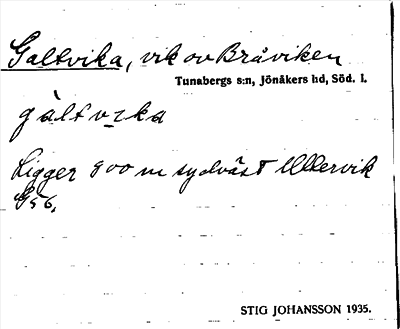 Galtvika, vik av Bråviken
Tunabergs s:n, Jönåkers hd, Söd. l.
gàltvika
Ligger 900 m sydväst Ullervik
G56.
STIG JOHANSSON 1935.